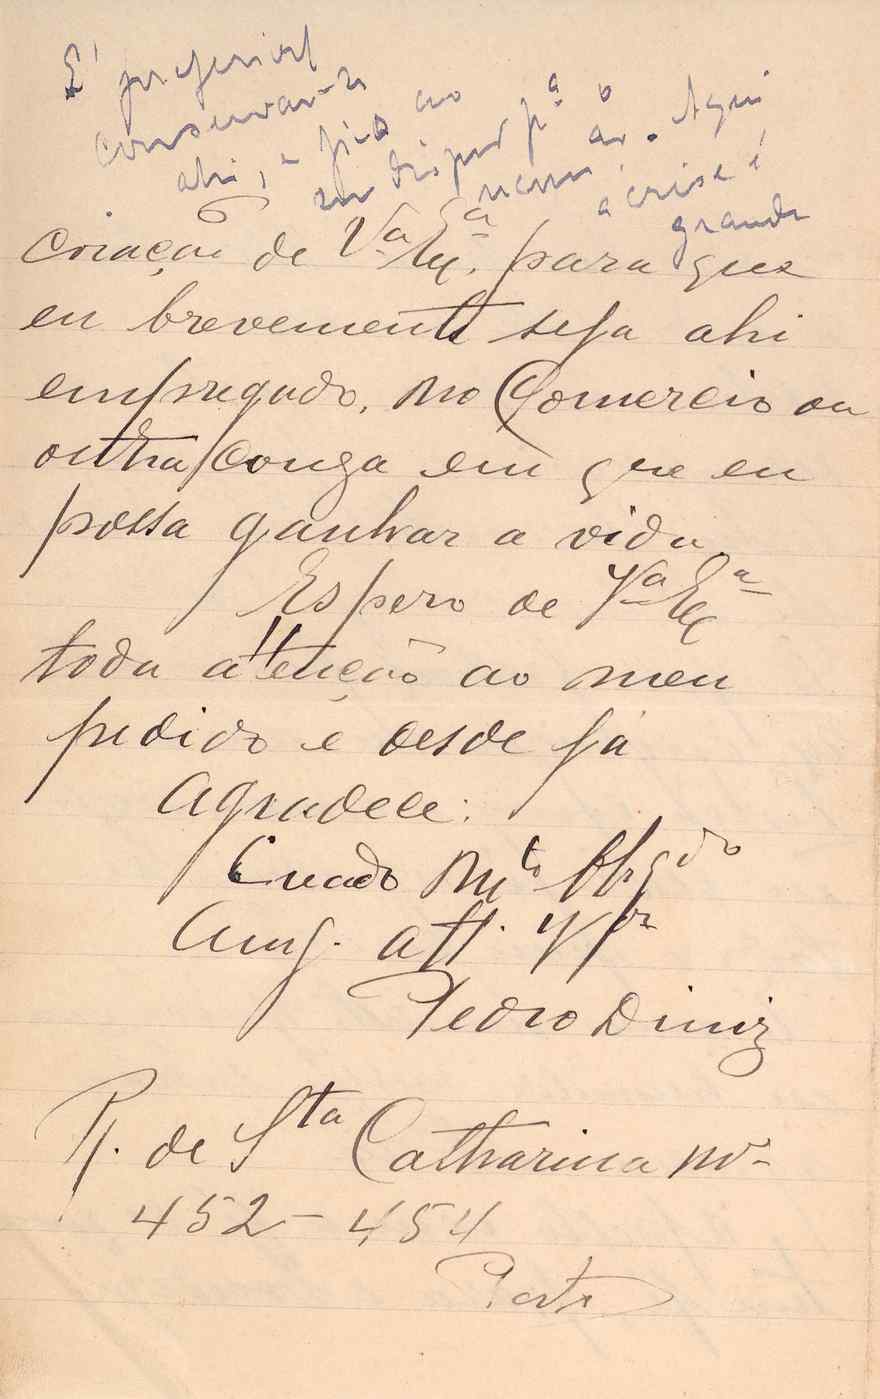 E' preferivel
conservar-se
ahi, e fico ao
seu dispor pª o
Aqui
a crise é
grande
coração de Vª Exª. para que
eu brevemente seja ahi
empregado, no Comercio ou
outra couza em que eu
possa ganhar a vida.
Espero de Vª Exª
toda attenção ao meu
pedido e desde já
Agradece:
Creado Mtº Obrgdo
Amg. att. V
Pedro Diniz
R. de Sta Catharina nº
452 - 454
Porto